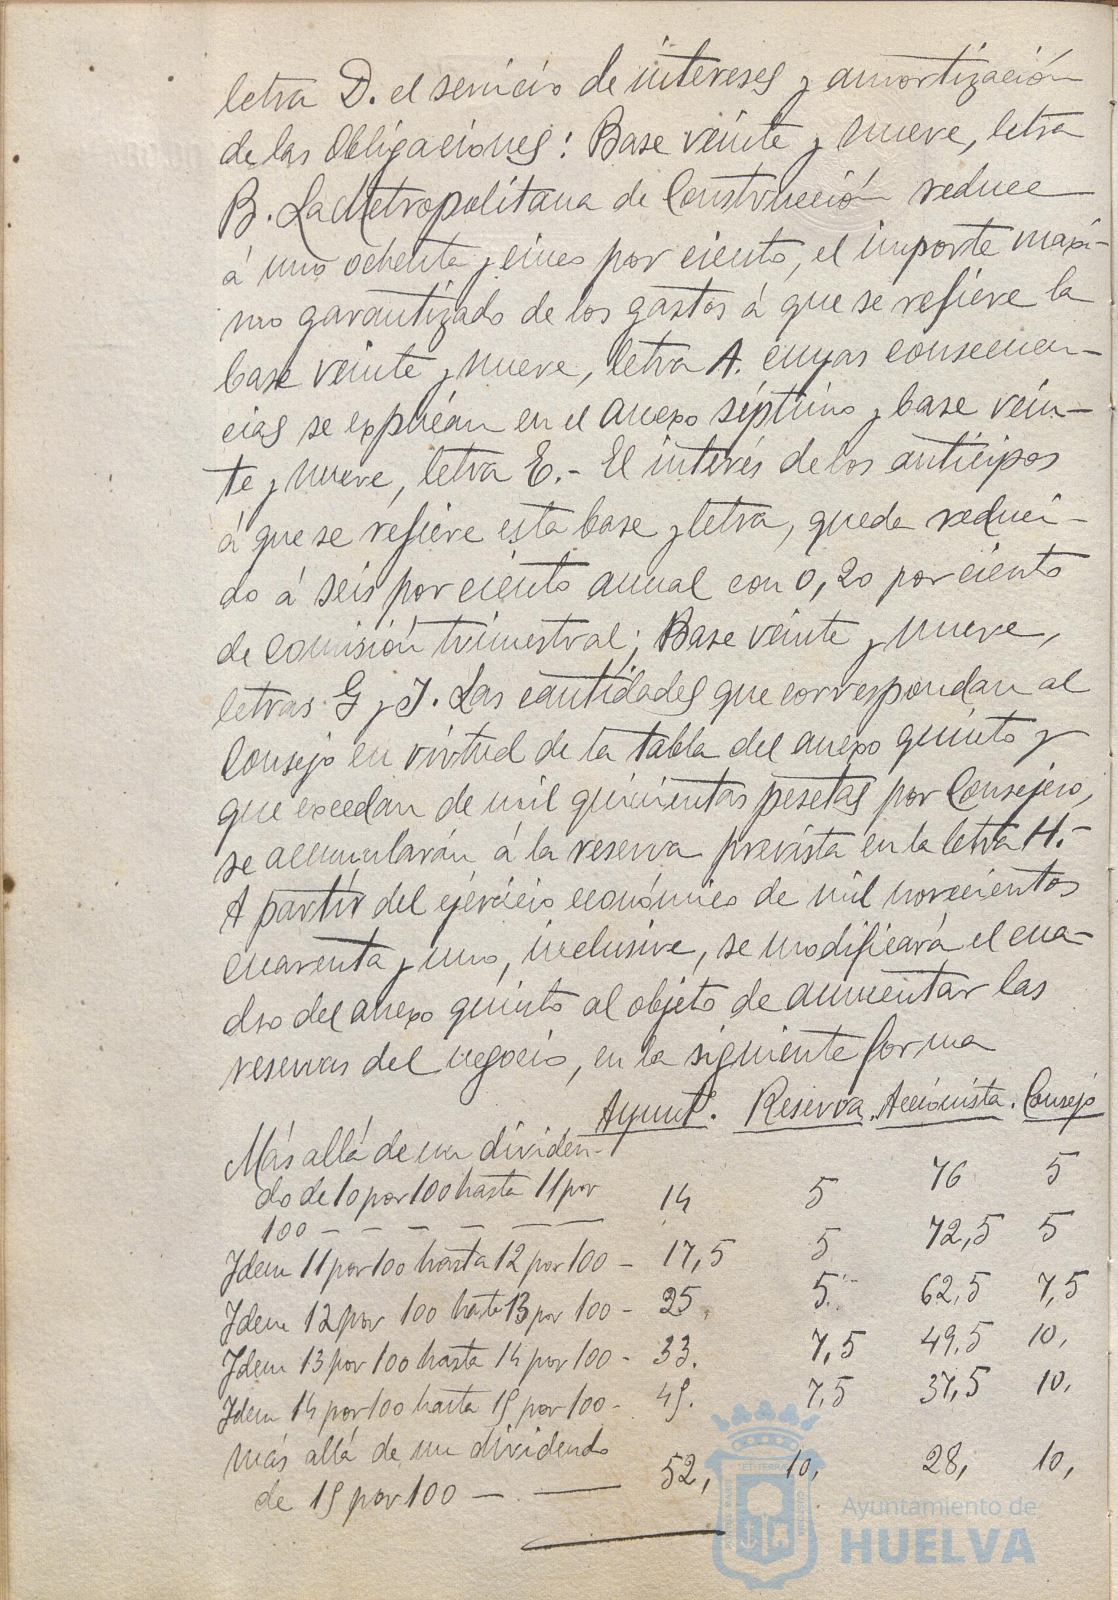 letra D. el servicio de intereses y amortización
de las Obligaciones: Base veinte y nueve, letra
B. La Metropolitana de Construcción reduce
á uno ochenta y cinco por ciento, el importe maxi-
mo garantizado de los gastos á que se refiere la
base veinte y nueve, letra A. cuyas consecuen-
cias se explican en el anexo séptimo y base vein-
te y nueve, letra E.- El interés de los anticipos
á que se refiere esta base y letra, queda reduci-
do á seis por ciento anual con 0,20 por ciento
de comisión trimestral; Base veinte y nueve,
letras G y J. Las cantidades que correspondan al
Consejo en virtud de la tabla del anexo quinto y
que excedan de mil quinientas pesetas por Consejero,
se acumularán á la reserva prevista en la letra H.-
A partir del ejercicio económico de mil novecientos
cuarenta y uno, inclusive, se modificará el cua-
dro del anexo quinto al objeto de aumentar las
reservas del negocio, en la siguiente forma
Ayuntº. Reserva. Accionista. Consejo
Más allá de un dividen-
do de 10 por 100 hasta 11 por
100 - - - - - - 14 5 76 5
Idem 11 por 100 hasta 12 por 100 - 17,5 5 72,5 5
Idem 12 por 100 hasta 13 por 100 - 25, 5 62,5 7,5
Idem 13 por 100 hasta 14 por 100 - 33. 7,5 49,5 10,
Idem 14 por 100 hasta 15 por 100 - 45. 7,5 37,5 10,
más allá de un dividendo
de 15 por 100 - - 52, 10, 28, 10,
Ayuntamiento de
HUELVA